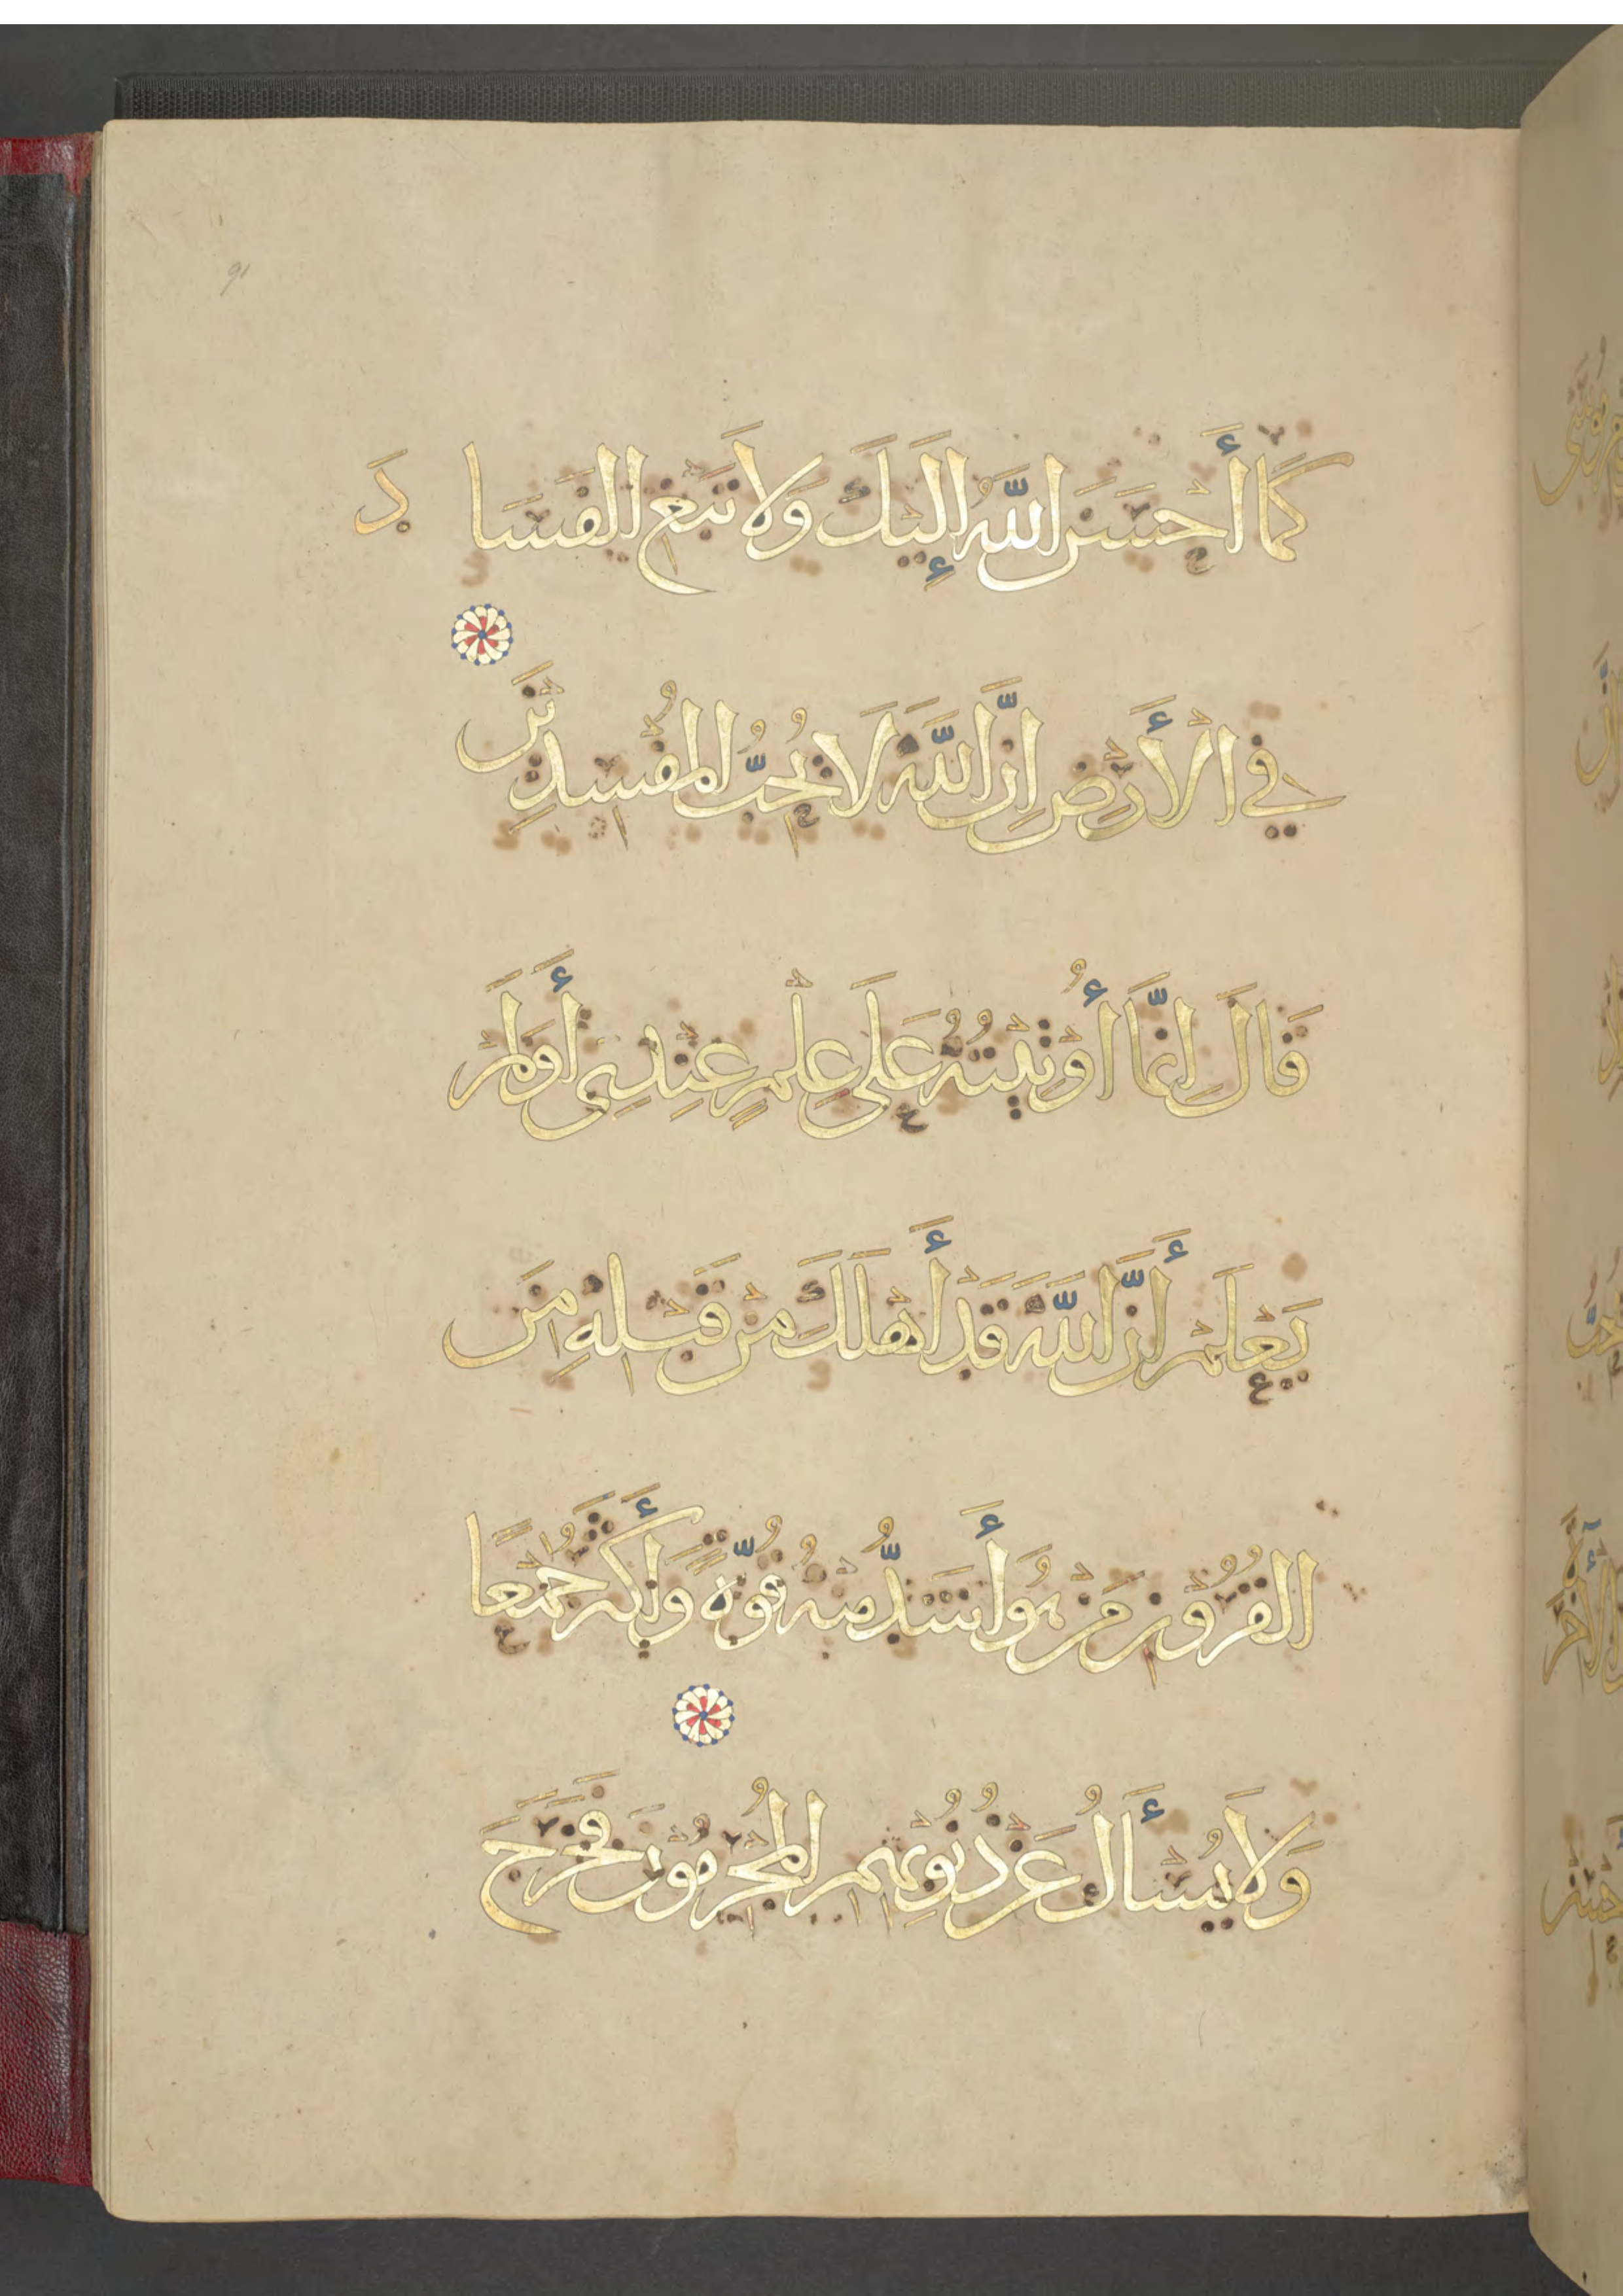 كَمَا أَحْسَنَ اللَّهُ إِلَيْكَ وَلَا تَبْغِ الْفَسَادَ
فِي الْأَرْضِ إِنَّ اللَّهَ لَا يُحِبُّ الْمُفْسِدِينَ
قَالَ إِنَّمَا أُوْتِيْتُهُ عَلَى عِلْمٍ عِنْدِي أَوَلَمْ
يَعْلَمْ أَنَّ اللَّهَ قَدْ أَهْلَكَ مِنْ قَبْلِهِ مِنَ
الْقُرُوْنِ مَنْ هُوَ أَشَدُّ مِنْهُ قُوَّةً وَأَكْثَرُ جَمْعًا
وَلَا يُسْأَلُ عَنْ ذُنُوْبِهِمُ الْمُجْرِمُوْنَ فَخَرَجَ
91